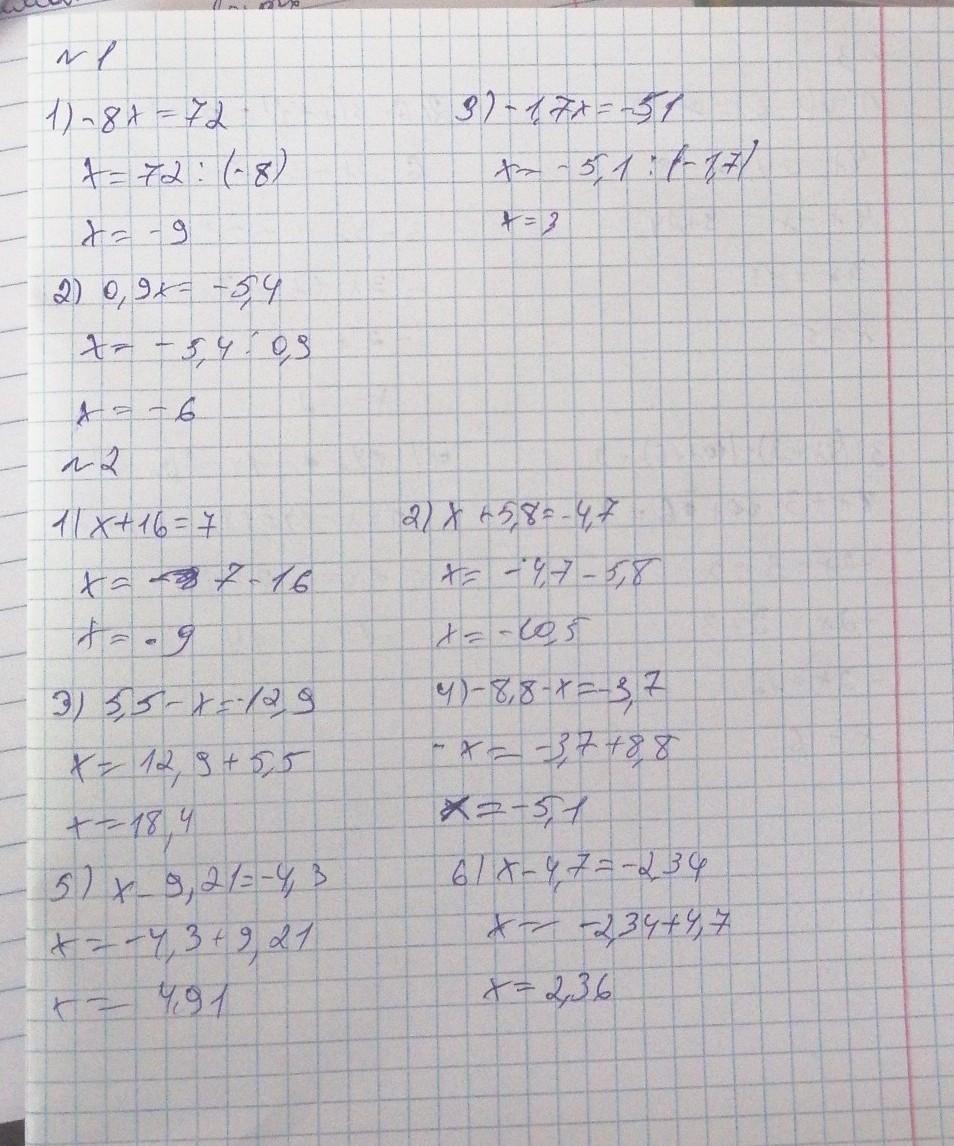 №1
1) -8x = 72
x = 72 : (-8)
x = -9
2) 0,9x = -5,4
x = -5,4 : 0,9
x = -6
3) -1,7x = -5,1
x = -5,1 : (-1,7)
x = 3
№2
1) x+16 = 7
x = 7 - 16
x = -9
2) x + 5,8 = -4,7
x = -4,7 - 5,8
x = -10,5
3) 5,5 - x = -12,9
x = 12,9 + 5,5
x = 18,4
4) -8,8 - x = -3,7
-x = -3,7 + 8,8
x = -5,1
5) x - 9,21 = -4,3
x = -4,3 + 9,21
x = 4,91
6) x - 4,7 = -2,34
x = -2,34 + 4,7
x = 2,36